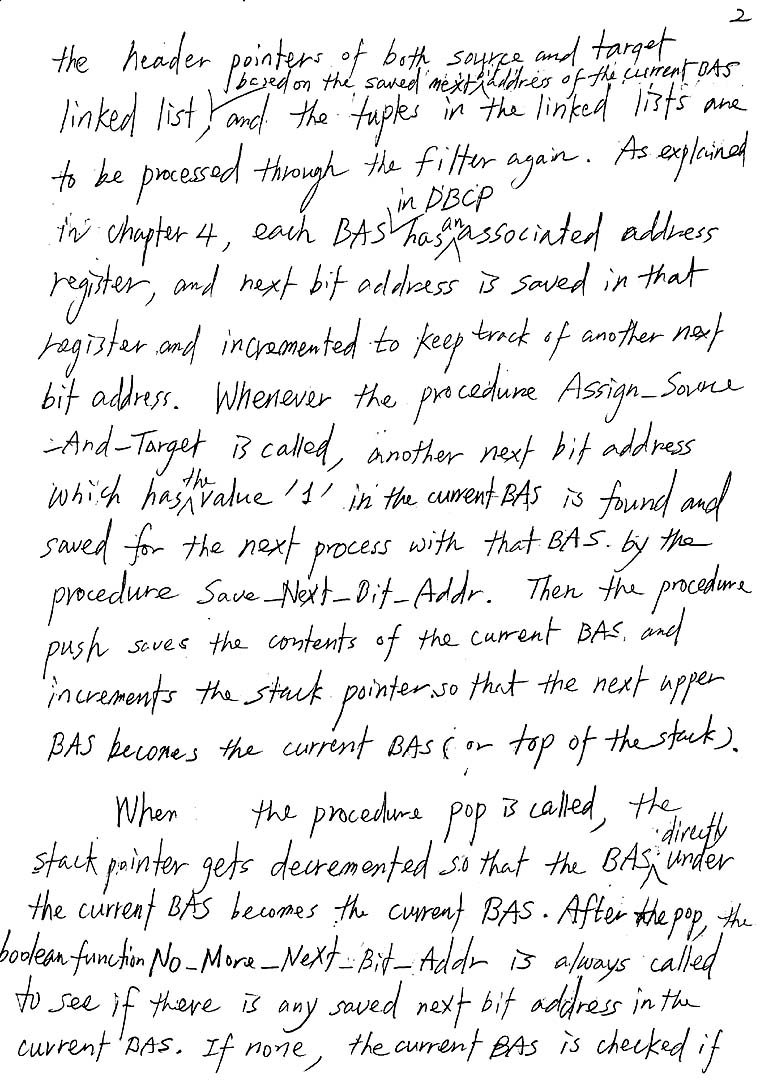 2
the header pointers of both source and target
based on the saved next address of the current BAS
linked list, and the tuples in the linked lists are
to be processed through the filter again. As explained
in DBCP
in chapter 4, each BAS has an associated address
register, and next bit address is saved in that
register and incremented to keep track of another next
bit address. Whenever the procedure Assign_Source
-And_Target is called, another next bit address
which has the value '1' in the current BAS is found and
saved for the next process with that BAS. by the
procedure Save_Next_Bit_Addr. Then the procedure
push saves the contents of the current BAS, and
increments the stack pointer so that the next upper
BAS becomes the current BAS (or top of the stack).
When the procedure pop is called, the
directly
stack pointer gets decremented so that the BAS under
the current BAS becomes the current BAS. After the pop, the
boolean function No_More_Next_Bit_Addr is always called
to see if there is any saved next bit address in the
current BAS. If none, the current BAS is checked if